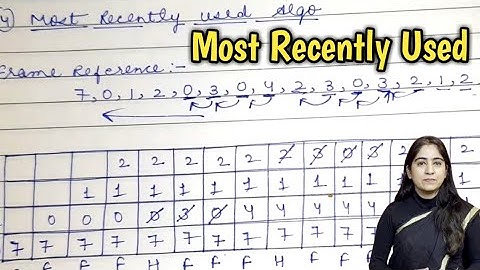 4) Most Recently used Algo
Most Recently Used
Frame Reference:-
7, 0, 1, 2, 0, 3, 0, 4, 2, 3, 0, 3, 2, 1, 2
2 2 2 2 2 2 3 0 3 2
1 1 1 1 1 1 1 1 1 1 1
0 0 0 0 3 0 4 4 4 4 4
7 7 7 7 7 7 7 7 7 7 7 7
F F F F H F F F H F F F